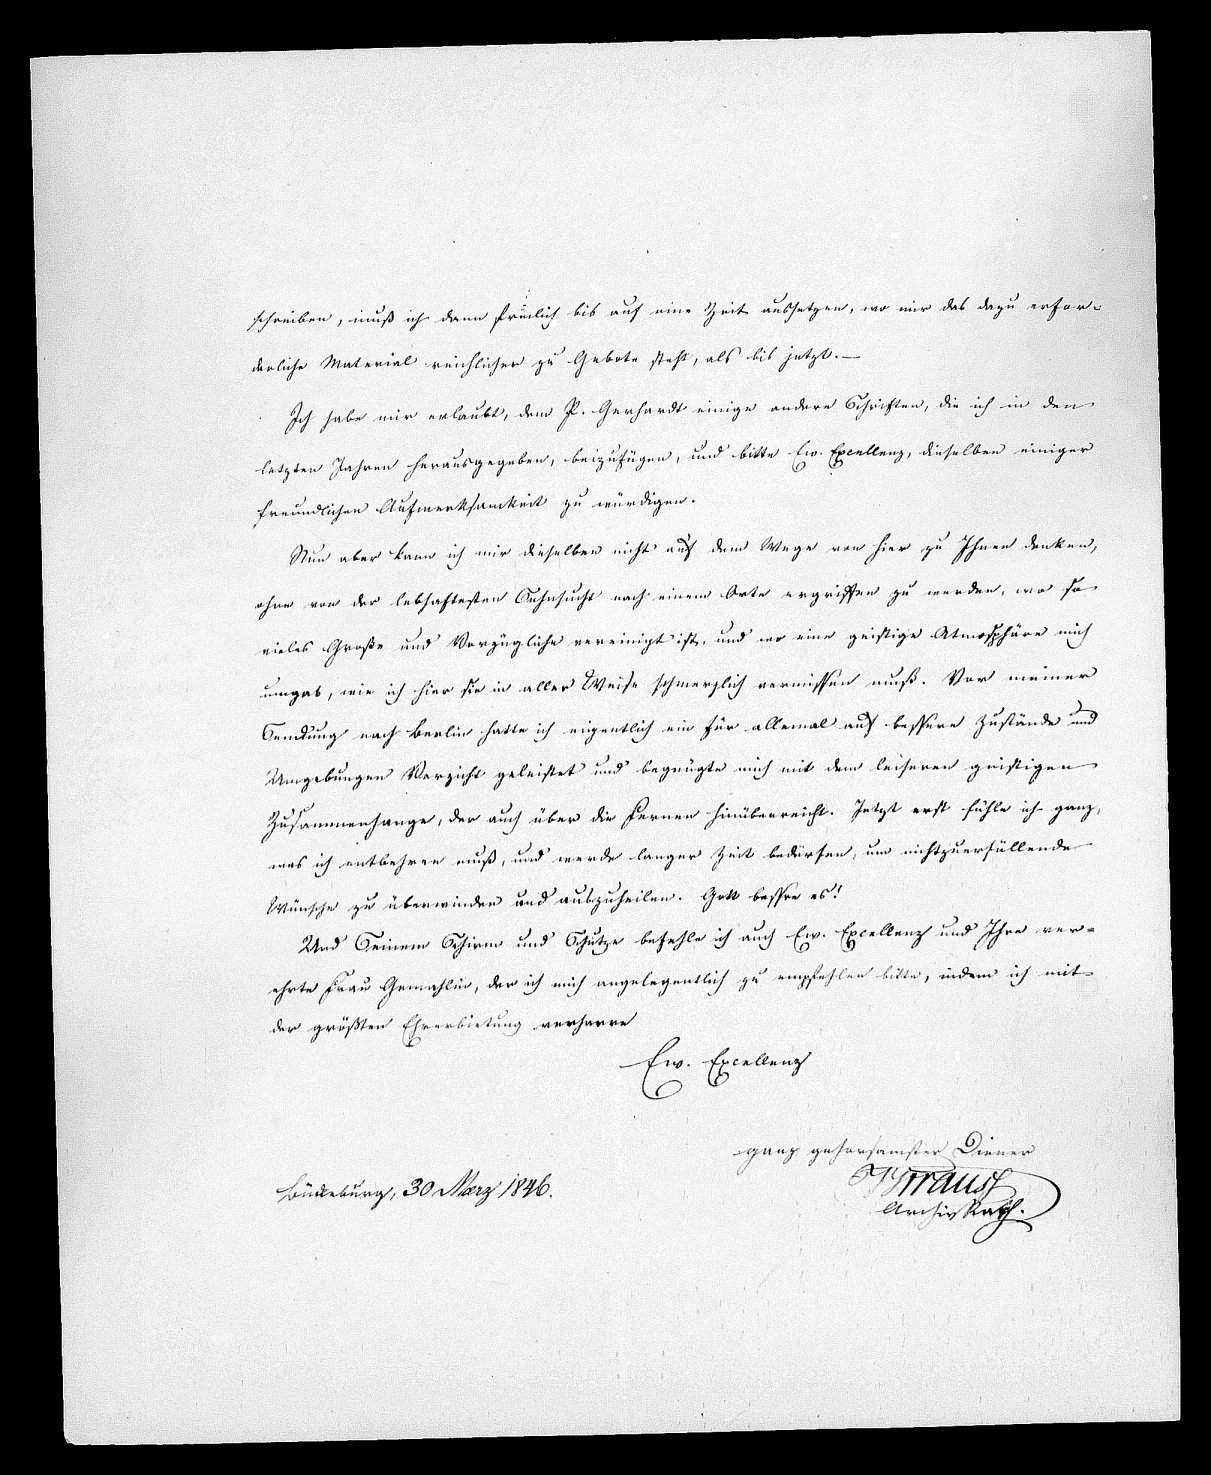 schreiben, muß ich dann freilich bis auf eine Zeit aussetzen, wo mir das dazu erfor-
derliche Material reichlicher zu Gebote steht, als bis jetzt. —
Ich habe mir erlaubt, dem P. Gerhardt einige andere Schriften, die ich in den
letzten Jahren herausgegeben, beizufügen, und bitte Ew. Excellenz, dieselben einiger
freundlichen Aufmerksamkeit zu würdigen.
Nun aber kann ich mir dieselben nicht auf dem Wege von hier zu Ihnen denken,
ohne von der lebhaftesten Sehnsucht nach einem Orte ergriffen zu werden, wo so
vieles Große und Vorzügliche vereinigt ist, und wo eine geistige Atmosphäre mich
umgab, wie ich hier sie in aller Weise schmerzlich vermissen muß. Vor meiner
Sendung nach Berlin hatte ich eigentlich ein für allemal auf bessere Zustände und
Umgebungen Verzicht geleistet und begnügte mich mit dem leiseren geistigen
Zusammenhange, der auch über die Fernen hinüberreicht. Jetzt erst fühle ich ganz,
was ich entbehren muß, und werde langer Zeit bedürfen, um nichtzuerfüllende
Wünsche zu überwinden und auszuheilen. Gott bessre es!
Und Seinem Schirm und Schutze befehle ich auch Ew. Excellenz und Ihre ver-
ehrte Frau Gemahlin, der ich mich angelegentlich zu empfehlen bitte, indem ich mit
der größten Ehrerbietung verharre
Ew. Excellenz
ganz gehorsamster Diener
Strauss
ArchivRath.
Bückeburg, 30 Maerz 1846.